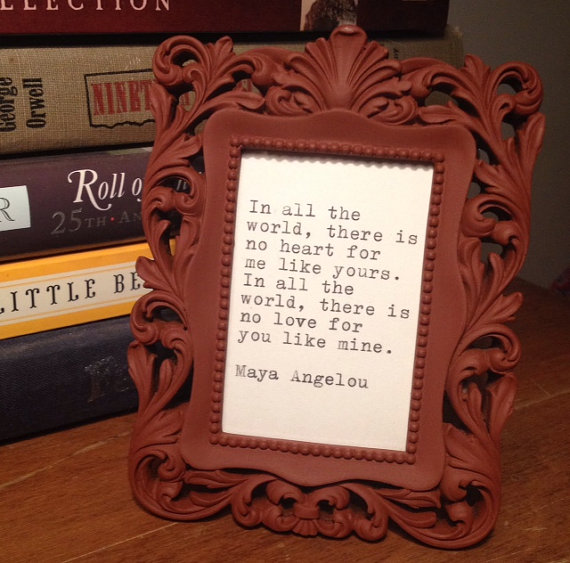 LLECTION
George
Orwell
NINET
R
Roll of
25TH·AN
LITTLE BE
In all the
world, there is
no heart for
me like yours.
In all the
world, there is
no love for
you like mine.
Maya Angelou